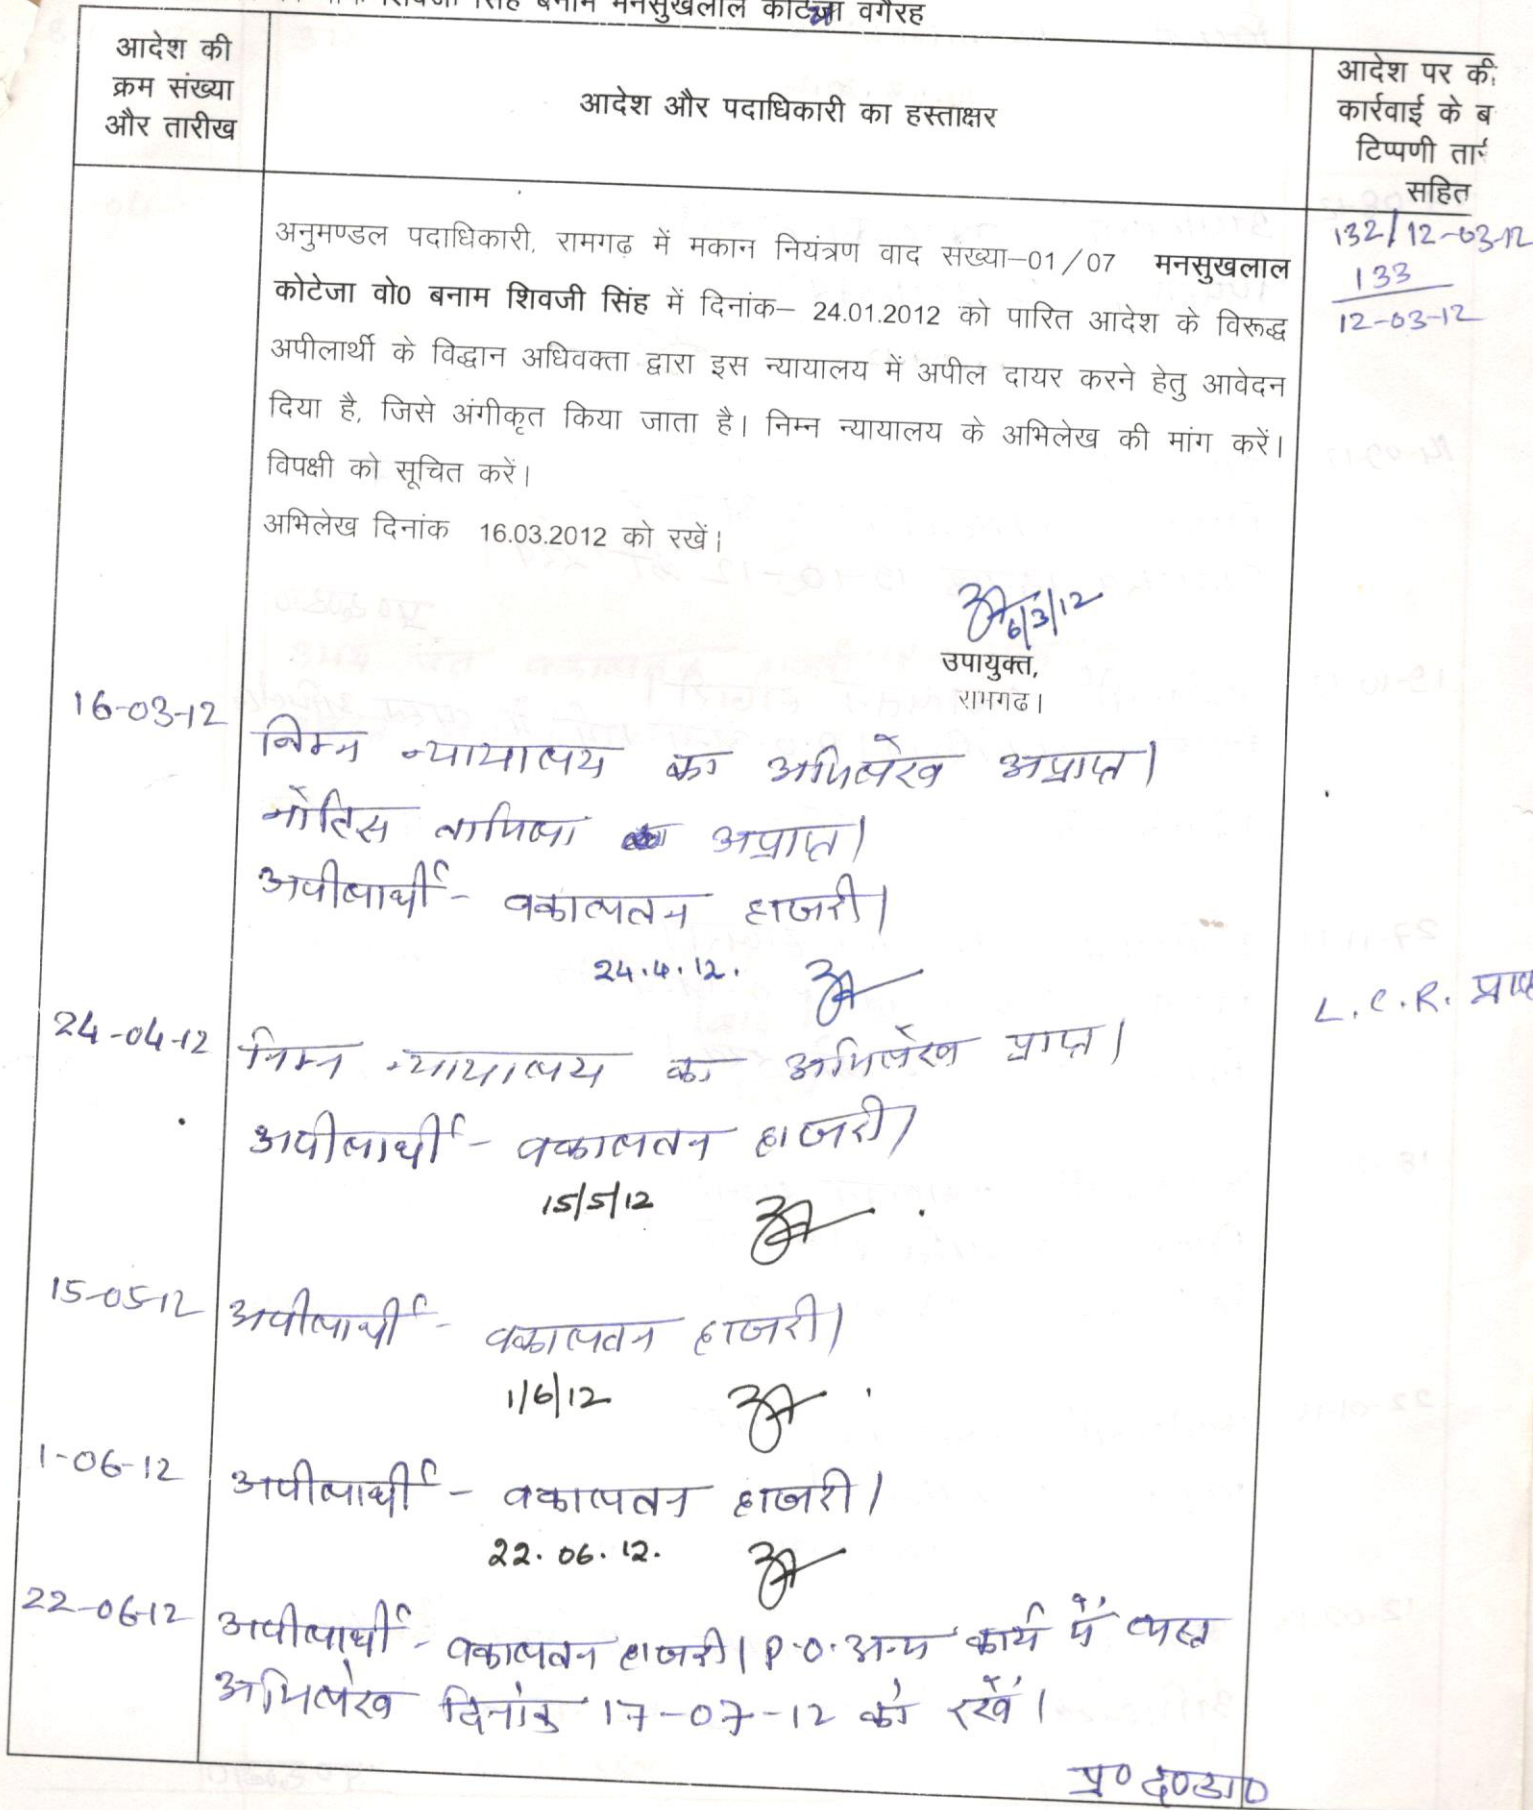 शिवजी सिंह बनाम मनसुखलाल कोटेजा वगैरह
आदेश की
क्रम संख्या
और तारीख
आदेश और पदाधिकारी का हस्ताक्षर
आदेश पर की
कार्रवाई के ब
टिप्पणी तार
सहित
132/12-03-12
133
12-03-12
अनुमण्डल पदाधिकारी, रामगढ़ में मकान नियंत्रण वाद संख्या–01/07 मनसुखलाल
कोटेजा वो0 बनाम शिवजी सिंह में दिनांक– 24.01.2012 को पारित आदेश के विरूद्ध
अपीलार्थी के विद्वान अधिवक्ता द्वारा इस न्यायालय में अपील दायर करने हेतु आवेदन
दिया है, जिसे अंगीकृत किया जाता है। निम्न न्यायालय के अभिलेख की मांग करें।
विपक्षी को सूचित करें।
अभिलेख दिनांक 16.03.2012 को रखें।
6/3/12
उपायुक्त,
रामगढ़।
16-03-12
निम्न न्यायालय का अभिलेख अप्राप्त।
नोटिस तामिला अप्राप्त।
अपीलार्थी - वकालतन हाजरी।
24.4.12.
24-04-12
निम्न न्यायालय का अभिलेख प्राप्त।
L.C.R. प्राप्त
अपीलार्थी - वकालतन हाजरी।
15/5/12
15-05-12
अपीलार्थी - वकालतन हाजरी।
1/6/12
1-06-12
अपीलार्थी - वकालतन हाजरी।
22.06.12.
22-06-12
अपीलार्थी - वकालतन हाजरी। P.O. अन्य कार्य में व्यस्त
अभिलेख दिनांक 17-07-12 को रखें।